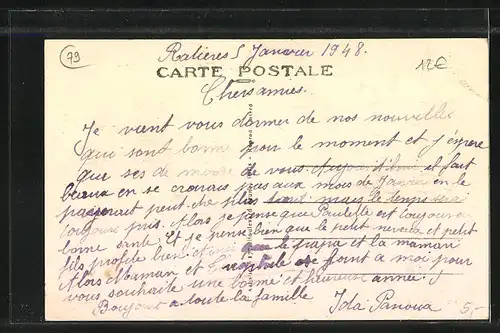 79
Ralières 5 Janvier 1948.
12€
CARTE POSTALE
Chers amies.
Je vient vous donner de nos nouvelles
qui sont bonne pour le moment et j'espère
que ses de même de vous. Aujourd'hui il fait
beaux en se croirais pas aux mois de Janvier en le
peut être plus tard mais le temps sera
toujours pris. Alors je pense que Paulette est toujours en
bonne santé et je pense bien que le petit neveu et petit
fils profite bien et que le papa et la maman
Alors Maman et se joint a moi pour
vous souhaite une bonne et heureuse année.
Bonjour a toute la famille Ida
5,-